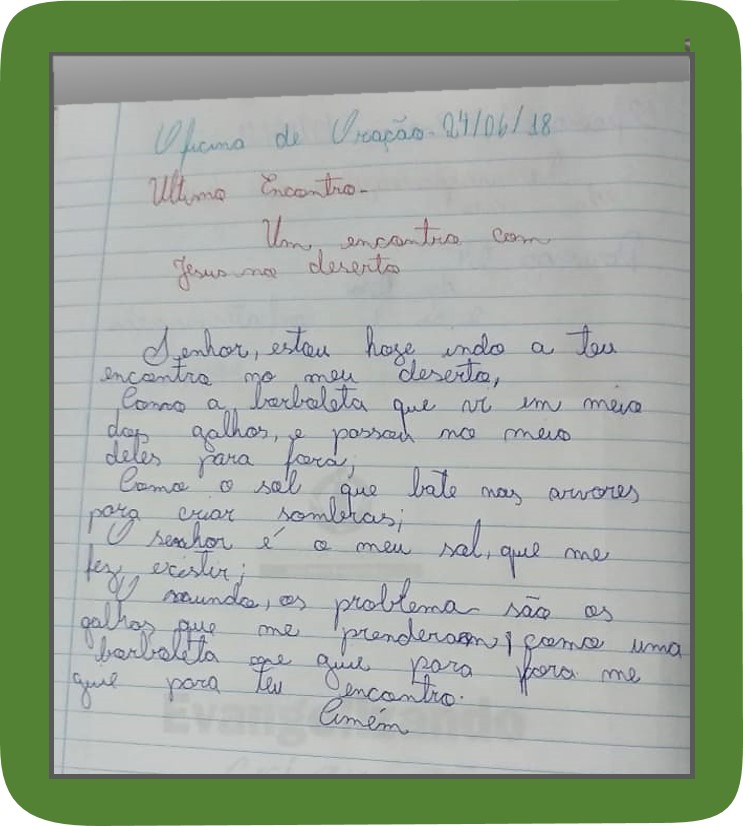 Oficina de Oração. 24/06/18
Ultimo Encontro-
Um encontro com
Jesus no deserto
Senhor, estou hoge indo a teu
encontro no meu deserto,
Como a borboleta que vi em meio
dos galhos, e passou no meio
deles para fora;
Como o sol que bate nas arvores
para criar sombras;
O senhor é o meu sol, que me
fez existir;
O mundo, os problema são os
galhos que me prenderam, como uma
borboleta me guie para fora me
guie para teu encontro.
Amém